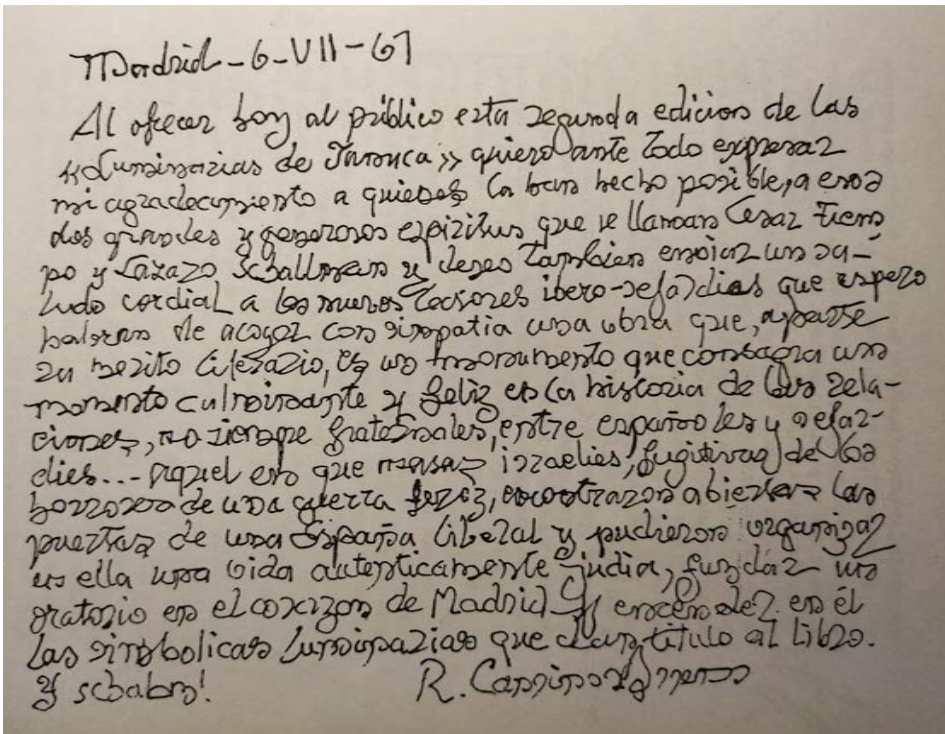 Madrid-6-VII-61
Al ofrecer hoy al público esta segunda edicion de las
«Luminarias de Janucá» quiero ante todo expresar
mi agradecimiento a quienes la han hecho posible, a esos
dos grandes y generosos espiritus que se llaman Cesar Tiem
po y Lázazo Schallman y deseo tambien enviar un sa-
ludo cordial a los nuevos lectores ibero-sefardies que espero
habran de acoger con simpatia una obra que, aparte
su merito literario, es un monumento que consagra un
momento culminante y feliz en la historia de las rela-
ciones, no siempre fraternales, entre españoles y sefar-
dies... aquel en que masas israelies, fugitivas de los
horrores de una guerra feroz, encontraron abiertas las
puertas de una España liberal y pudieron organizar
en ella una vida autenticamente judia, fundar un
oratorio en el corazon de Madrid y encender en él
las simbolicas luminarias que dan titulo al libro.
Y schalom!
R. Cansinos Assens